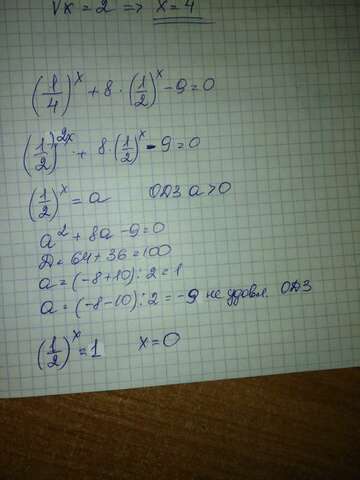 √x = 2 => x = 4
(1/4)^x + 8 · (1/2)^x - 9 = 0
(1/2)^2x + 8 · (1/2)^x - 9 = 0
(1/2)^x = a ОДЗ a > 0
a^2 + 8a - 9 = 0
D = 64 + 36 = 100
a = (-8+10) : 2 = 1
a = (-8-10) : 2 = -9 не удовл. ОДЗ
(1/2)^x = 1 x = 0